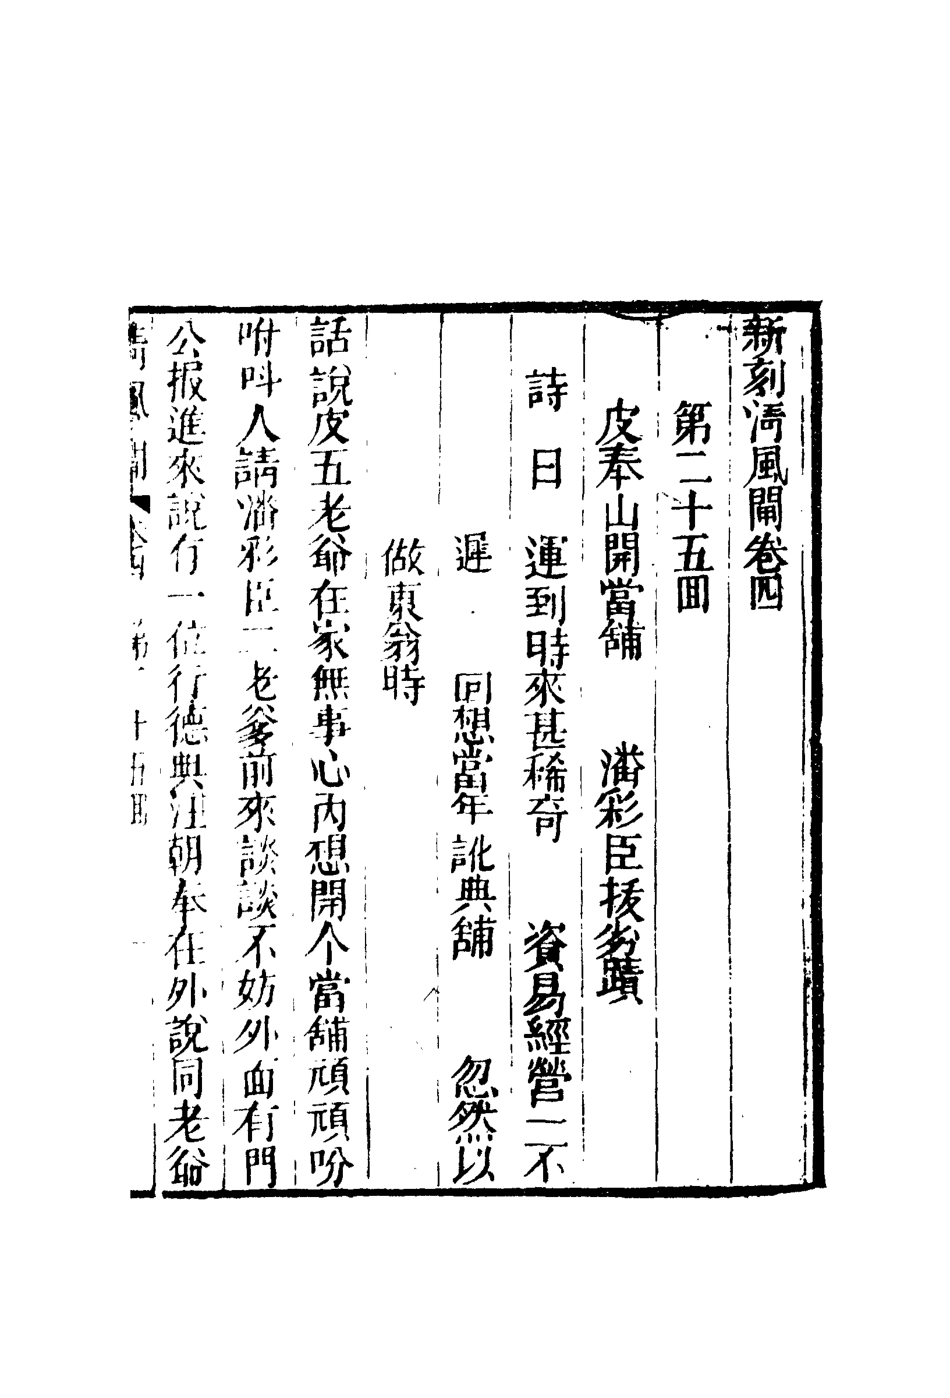 新刻清風閘卷四
第二十五回
皮奉山開當舖　潘彩臣拔劣蹟
詩曰　運到時來甚稀奇　資易經營二不
遲　回想當年訛典舖　忽然以
做東翁時
話說皮五老爺在家無事心內想開个當舖頑頑吩
咐呌人請潘彩臣二老爹前來談談不妨外面有門
公报進來說有一位行德典汪朝奉在外說同老爺
清風閘　卷四　第二十五回